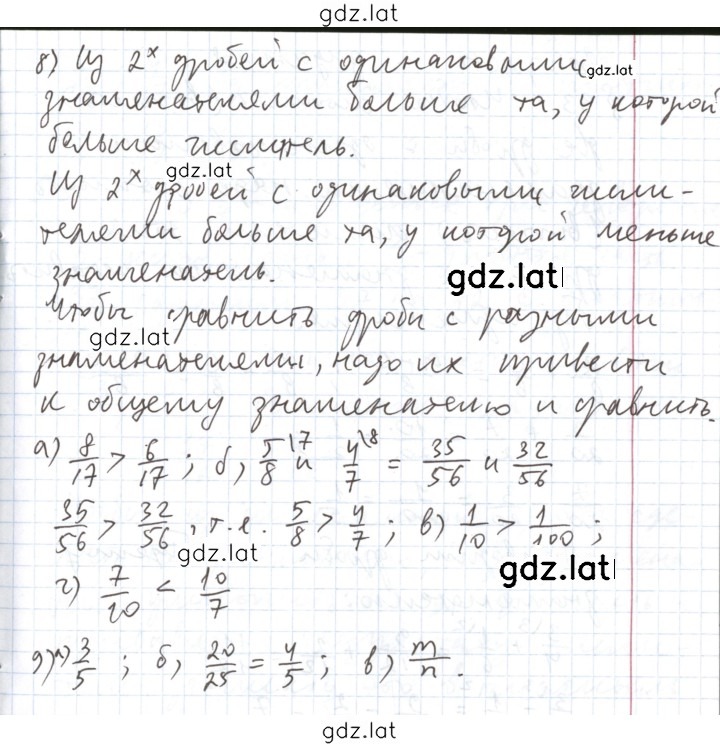 gdz.lat
8) Из 2ˣ дробей с одинаковыми
gdz.lat
знаменателями больше та, у которой
больше числитель.
gdz.lat
Из 2ˣ дробей с одинаковыми числи-
телями больше та, у которой меньше
знаменатель.
gdz.lat
Чтобы сравнить дроби с разными
gdz.lat
знаменателями, надо их привести
к общему знаменателю и сравнить.
а) 8/17 > 6/17; б) 5/8 \7 и 4/7 \8 = 35/56 и 32/56
35/56 > 32/56, т.е. 5/8 > 4/7; в) 1/10 > 1/100;
gdz.lat
gdz.lat
г) 7/20 < 10/7
9) а) 3/5; б) 20/25 = 4/5; в) m/n.
gdz.lat